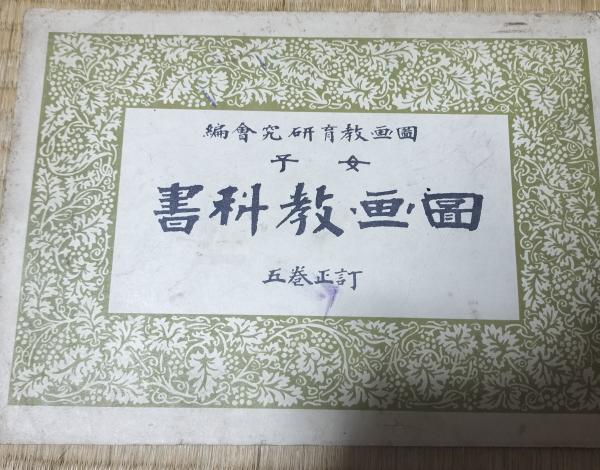 圖画教育研究會編
女子
圖画教科書
訂正五巻